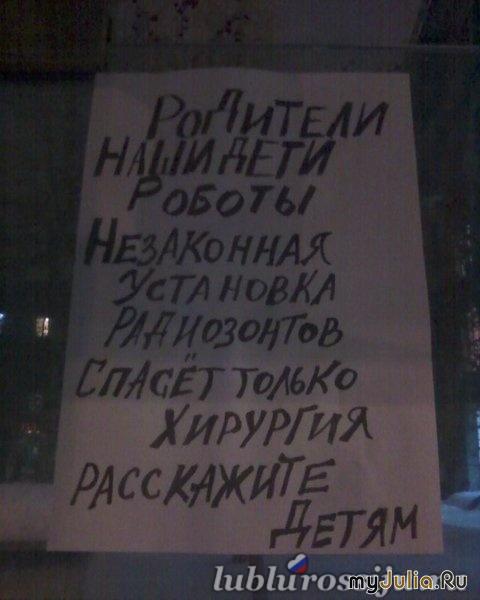 РОДИТЕЛИ
НАШИ ДЕТИ
РОБОТЫ
НЕЗАКОННАЯ
УСТАНОВКА
РАДИОЗОНТОВ
СПАСЁТ ТОЛЬКО
ХИРУРГИЯ
РАССКАЖИТЕ
ДЕТЯМ
myJulia.Ru